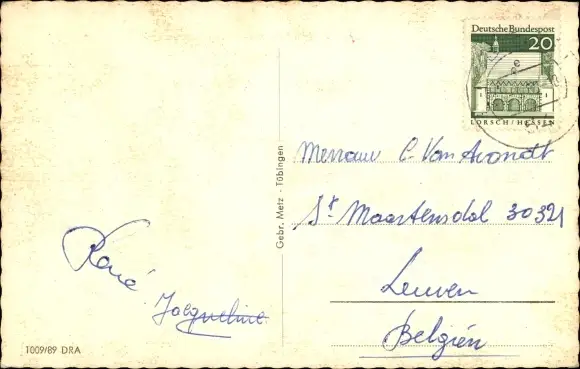 Deutsche Bundespost
20
LORSCH/HESSEN
Mevrouw C. Van Avondt
St Maartensdal 30321
Leuven
Belgiën
Gebr. Metz - Tübingen
René
Jacqueline
1009/89 DRA